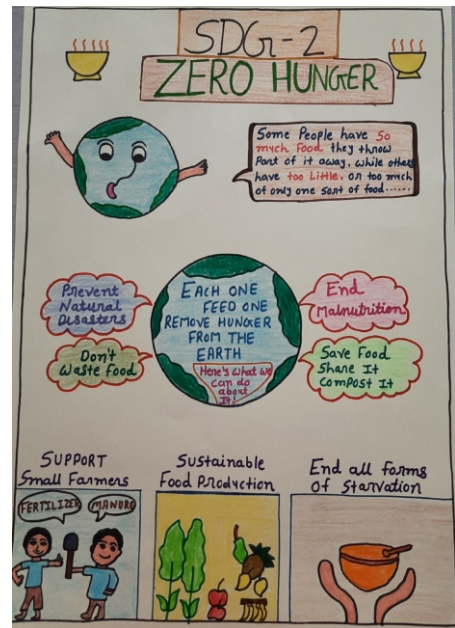 SDG-2
ZERO HUNGER
Some People have So
much Food they throw
Part of it away, while others
have too Little, or too much
of only one sort of food......
Prevent
Natural
Disasters
EACH ONE
FEED ONE
REMOVE HUNGER
FROM THE
EARTH
Here's what we
can do
about
It!
End
Malnutrition
Don't
Waste Food
Save Food
Share It
Compost It
SUPPORT
Small Farmers
FERTILIZER
MANURE
Sustainable
Food Production
End all forms
Of Starvation